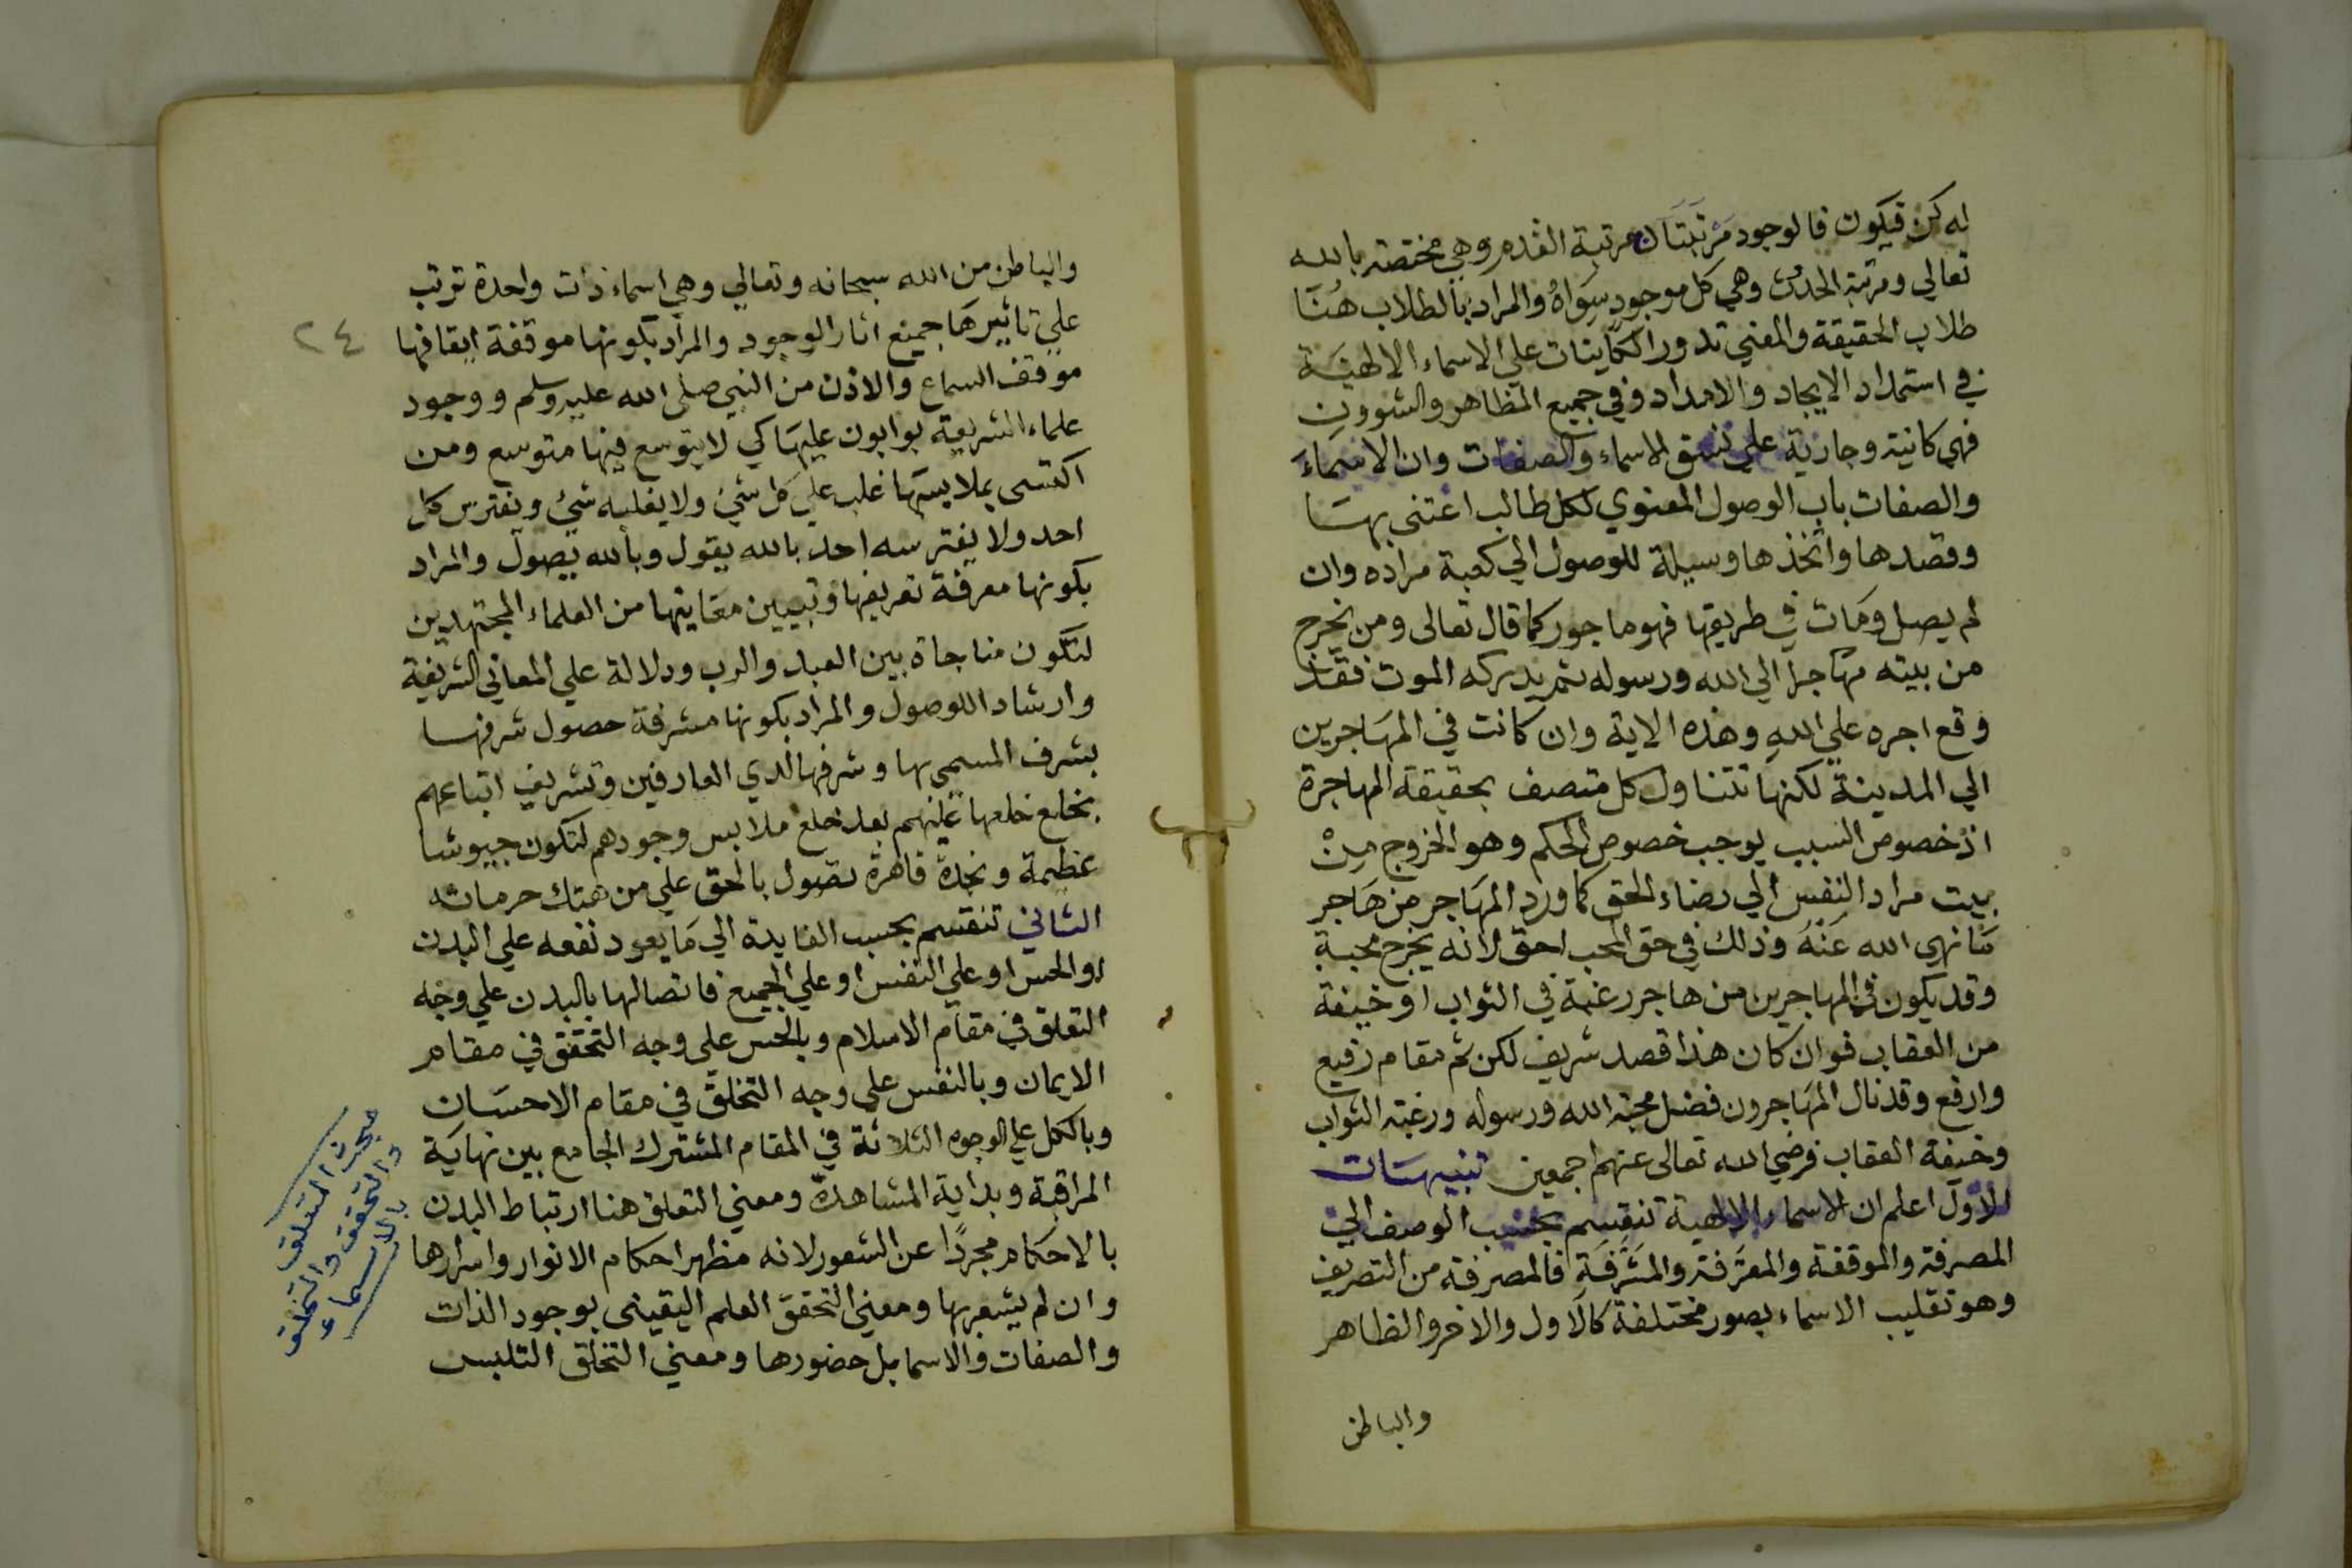 له كن فيكون فالوجود مرتبتان مرتبة القدم وهي مختصة بالله
تعالي ومرتبة الحدث وهي كل موجود سواه والمراد بالطلاب هنا
طلاب الحقيقة والمعني تدور الكاينات علي الاسماء الالهية
في استمداد الايجاد والامداد وفي جميع المظاهر والشوون
فهي كانية وجارية علي نسق الاسماء والصفات وان الاسماء
والصفات باب الوصول المعنوي لكل طالب اعتنى بها
وقصدها واتخذها وسيلة للوصول الي كعبة مراده وان
لم يصل ومات في طريقها فهو ماجور كما قال تعالى ومن يخرج
من بيته مهاجرا الي الله ورسوله ثم يدركه الموت فقد
وقع اجره علي الله وهذه الاية وان كانت في المهاجرين
الي المدينة لكنها تتناول كل متصف بحقيقة المهاجرة
اذ خصوص السبب يوجب خصوص الحكم وهو الخروج من
بيت مراد النفس الي رضاء الحق كما ورد المهاجر من هاجر
ما نهي الله عنه وذلك في حق المحب احق لانه يخرج محبة
وقد يكون في المهاجرين من هاجر رغبة في الثواب او خيفة
من العقاب فوان كان هذا قصد شريف لكن ثم مقام رفيع
وارفع وقد نال المهاجرون فضل محبة الله ورسوله ورغبة الثواب
وخيفة العقاب فرضي الله تعالى عنهم اجمعين تنبيهات
الاول اعلم ان الاسماء الالهية تنقسم بحسب الوصف الي
المصرفة والموقفة والمعرفة والمشرفة فالمصرفة من التصريف
وهو تقليب الاسماء بصور مختلفة كالاول والاخر والظاهر
والباطن
والباطن من الله سبحانه وتعالي وهي اسماء ذات واحدة ترتب
علي تاثيرها جميع اثار الوجود والمراد بكونها موقفة ايقافها
٢٤
موقف السماع والاذن من النبي صلى الله عليه وسلم ووجود
علماء الشريعة بوابون عليها كي لا يتوسع فيها متوسع ومن
اكتسى بملابستها غلب علي كل شي ولا يغلبه شي ويفترس كل
احد ولا يفترسه احد بالله يقول وبالله يصول والمراد
بكونها معرفة تعريفها وتبيين معانيها من العلماء المجتهدين
لتكون مناجاة بين العبد والرب ودلالة علي المعاني الشريفة
وارشادا للوصول والمراد بكونها مشرفة حصول شرفها
بشرف المسمي بها وشرفها لدي العارفين وتشريف اتباعهم
بخلع خلعها عليهم بعد خلع ملابس وجودهم لتكون جيوشا
عظيمة ونجدة قاهرة تصول بالحق علي من هتك حرماته
الثاني تنقسم بحسب الفايدة الي ما يعود نفعه علي البدن
او الحس او علي النفس او علي الجميع فاتصالها بالبدن علي وجه
التعلق في مقام الاسلام وبالحس علي وجه التحقق في مقام
الايمان وبالنفس علي وجه التخلق في مقام الاحسان
وبالكل علي الوجوه الثلاثة في المقام المشترك الجامع بين نهاية
المراقبة وبداية المشاهدة ومعني التعلق هنا ارتباط البدن
بالاحكام مجردا عن الشعور لانه مظهر احكام الانوار واسرارها
وان لم يشعر بها ومعني التحقق العلم اليقيني بوجود الذات
والصفات والاسما بل حضورها ومعني التخلق التلبس
مبحث التعلق
والتحقق والتخلق
بالاسماء